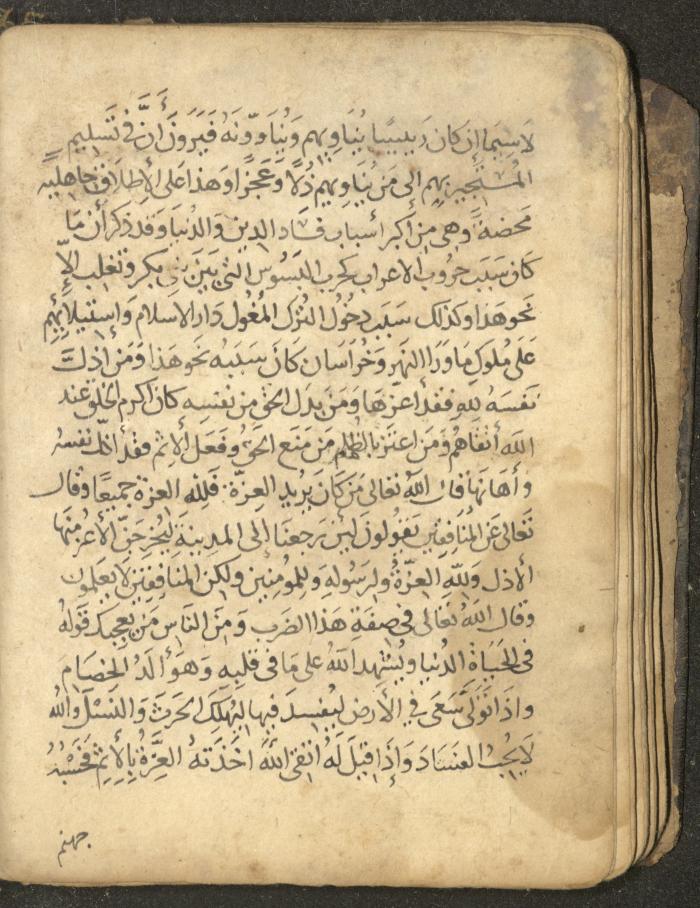 لاسيما إن كان رييسا يناويهم ويناوونه فيرون أن في تسليم
المستجير بهم إلى من يناويهم ذلا وعجزا وهذا على الإطلاق جاهلية
محضة وهي من أكبر أسباب فساد الدين والدنيا وقد ذكر أن ما
كان سبب حروب الاعراب كحرب البسوس التي بين بني بكر وتغلب إلا
نحو هذا وكذلك سبب دخول الترك المغول دار الاسلام واستيلايهم
على ملوك ماورا النهر وخراسان كان سببه نحو هذا ومن اذل
نفسه لله فقد اعزها ومن بذل الحق من نفسه كان اكرم الخلق عند
الله أتقاهم ومن اعتز بالظلم من منع الحق وفعل الإثم فقد اذل نفسه
وأهانها قال الله تعالى من كان يريد العزة فلله العزة جميعا وقال
تعالى عن المنافقين يقولون لين رجعنا إلى المدينة ليخرجن الأعز منها
الأذل ولله العزة ولرسوله وللمومنين ولكن المنافقين لا يعلمون
وقال الله تعالى في صفة هذا الضرب ومن الناس من يعجبك قوله
في الحياة الدنيا ويشهد الله على ما في قلبه وهو ألد الخصام
واذا تولى سعى في الأرض ليفسد فيها ليهلك الحرث والنسل والله
لا يحب الفساد وإذا قيل له اتق الله اخذته العزة بالإثم فحسبه
جهنم